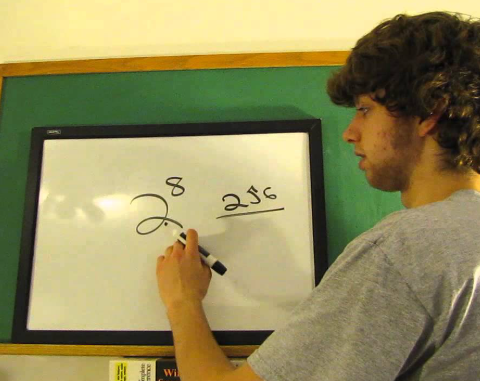 2⁸ 256
Wi